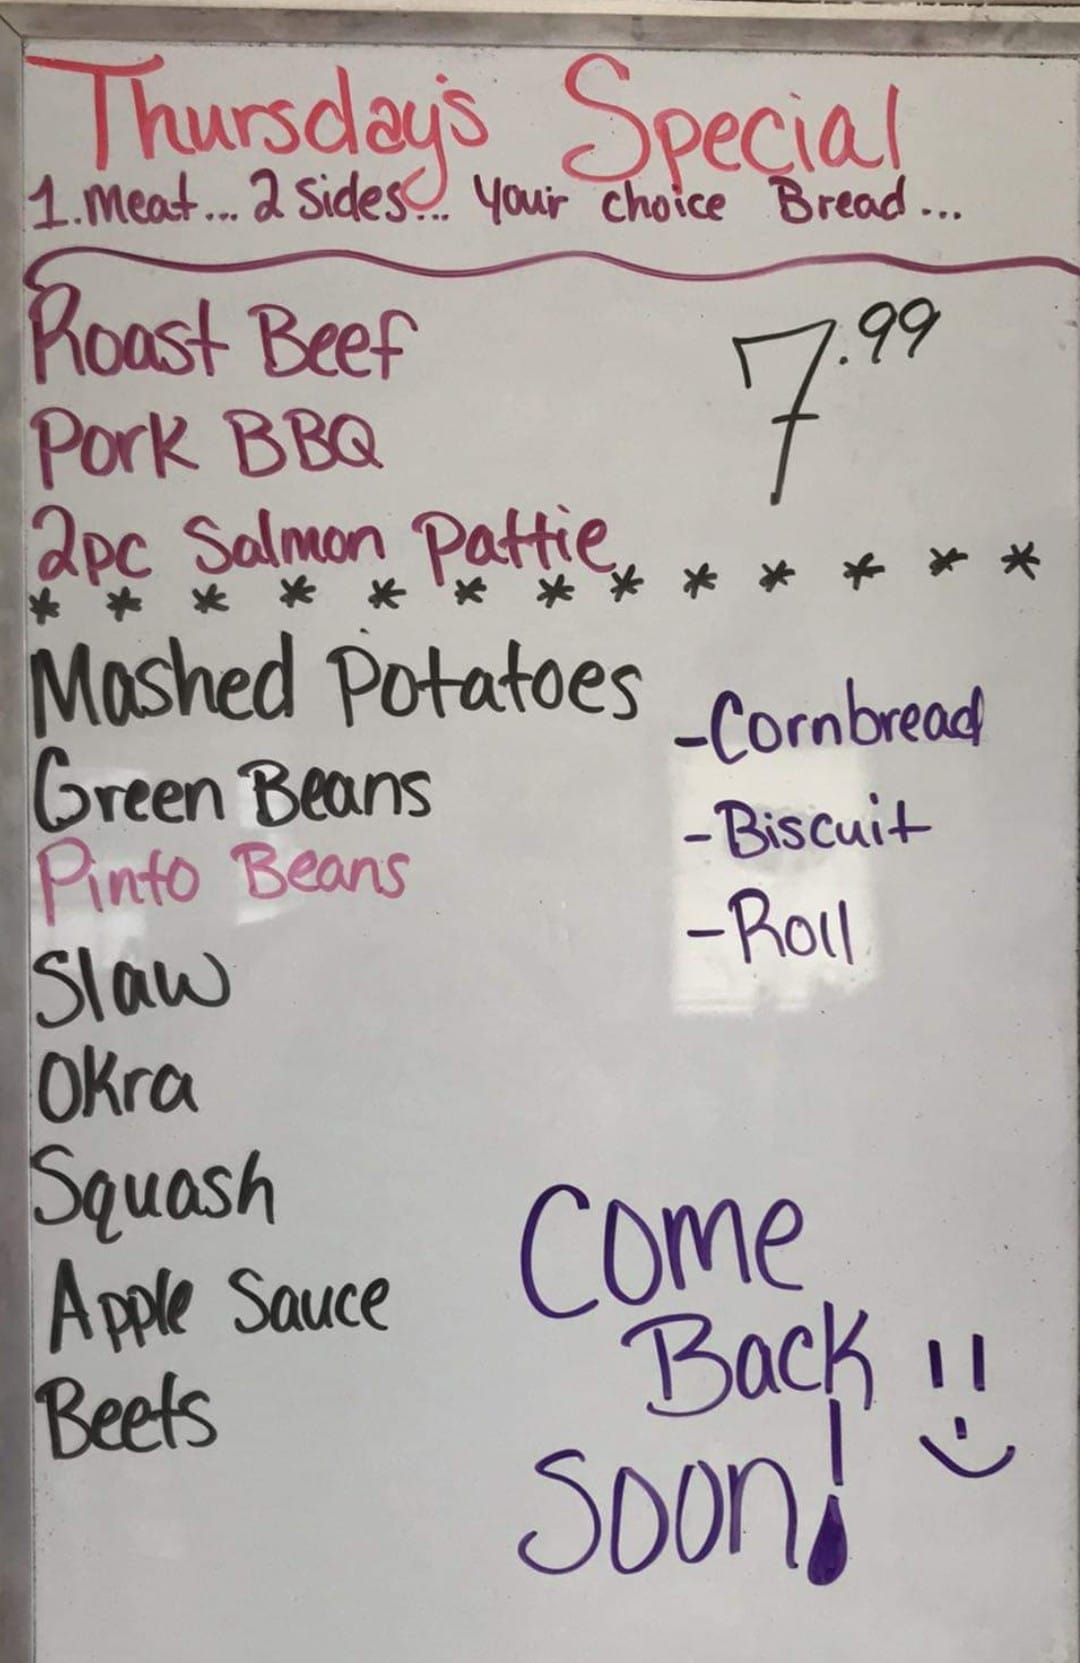 Thursday's Special
1. Meat... 2 Sides... Your choice Bread...
Roast Beef
7.99
Pork BBQ
2pc Salmon Pattie
* * * * * * * * * * * * *
Mashed Potatoes
Green Beans
Pinto Beans
Slaw
Okra
Squash
Apple Sauce
Beets
-Cornbread
-Biscuit
-Roll
Come
Back
Soon!